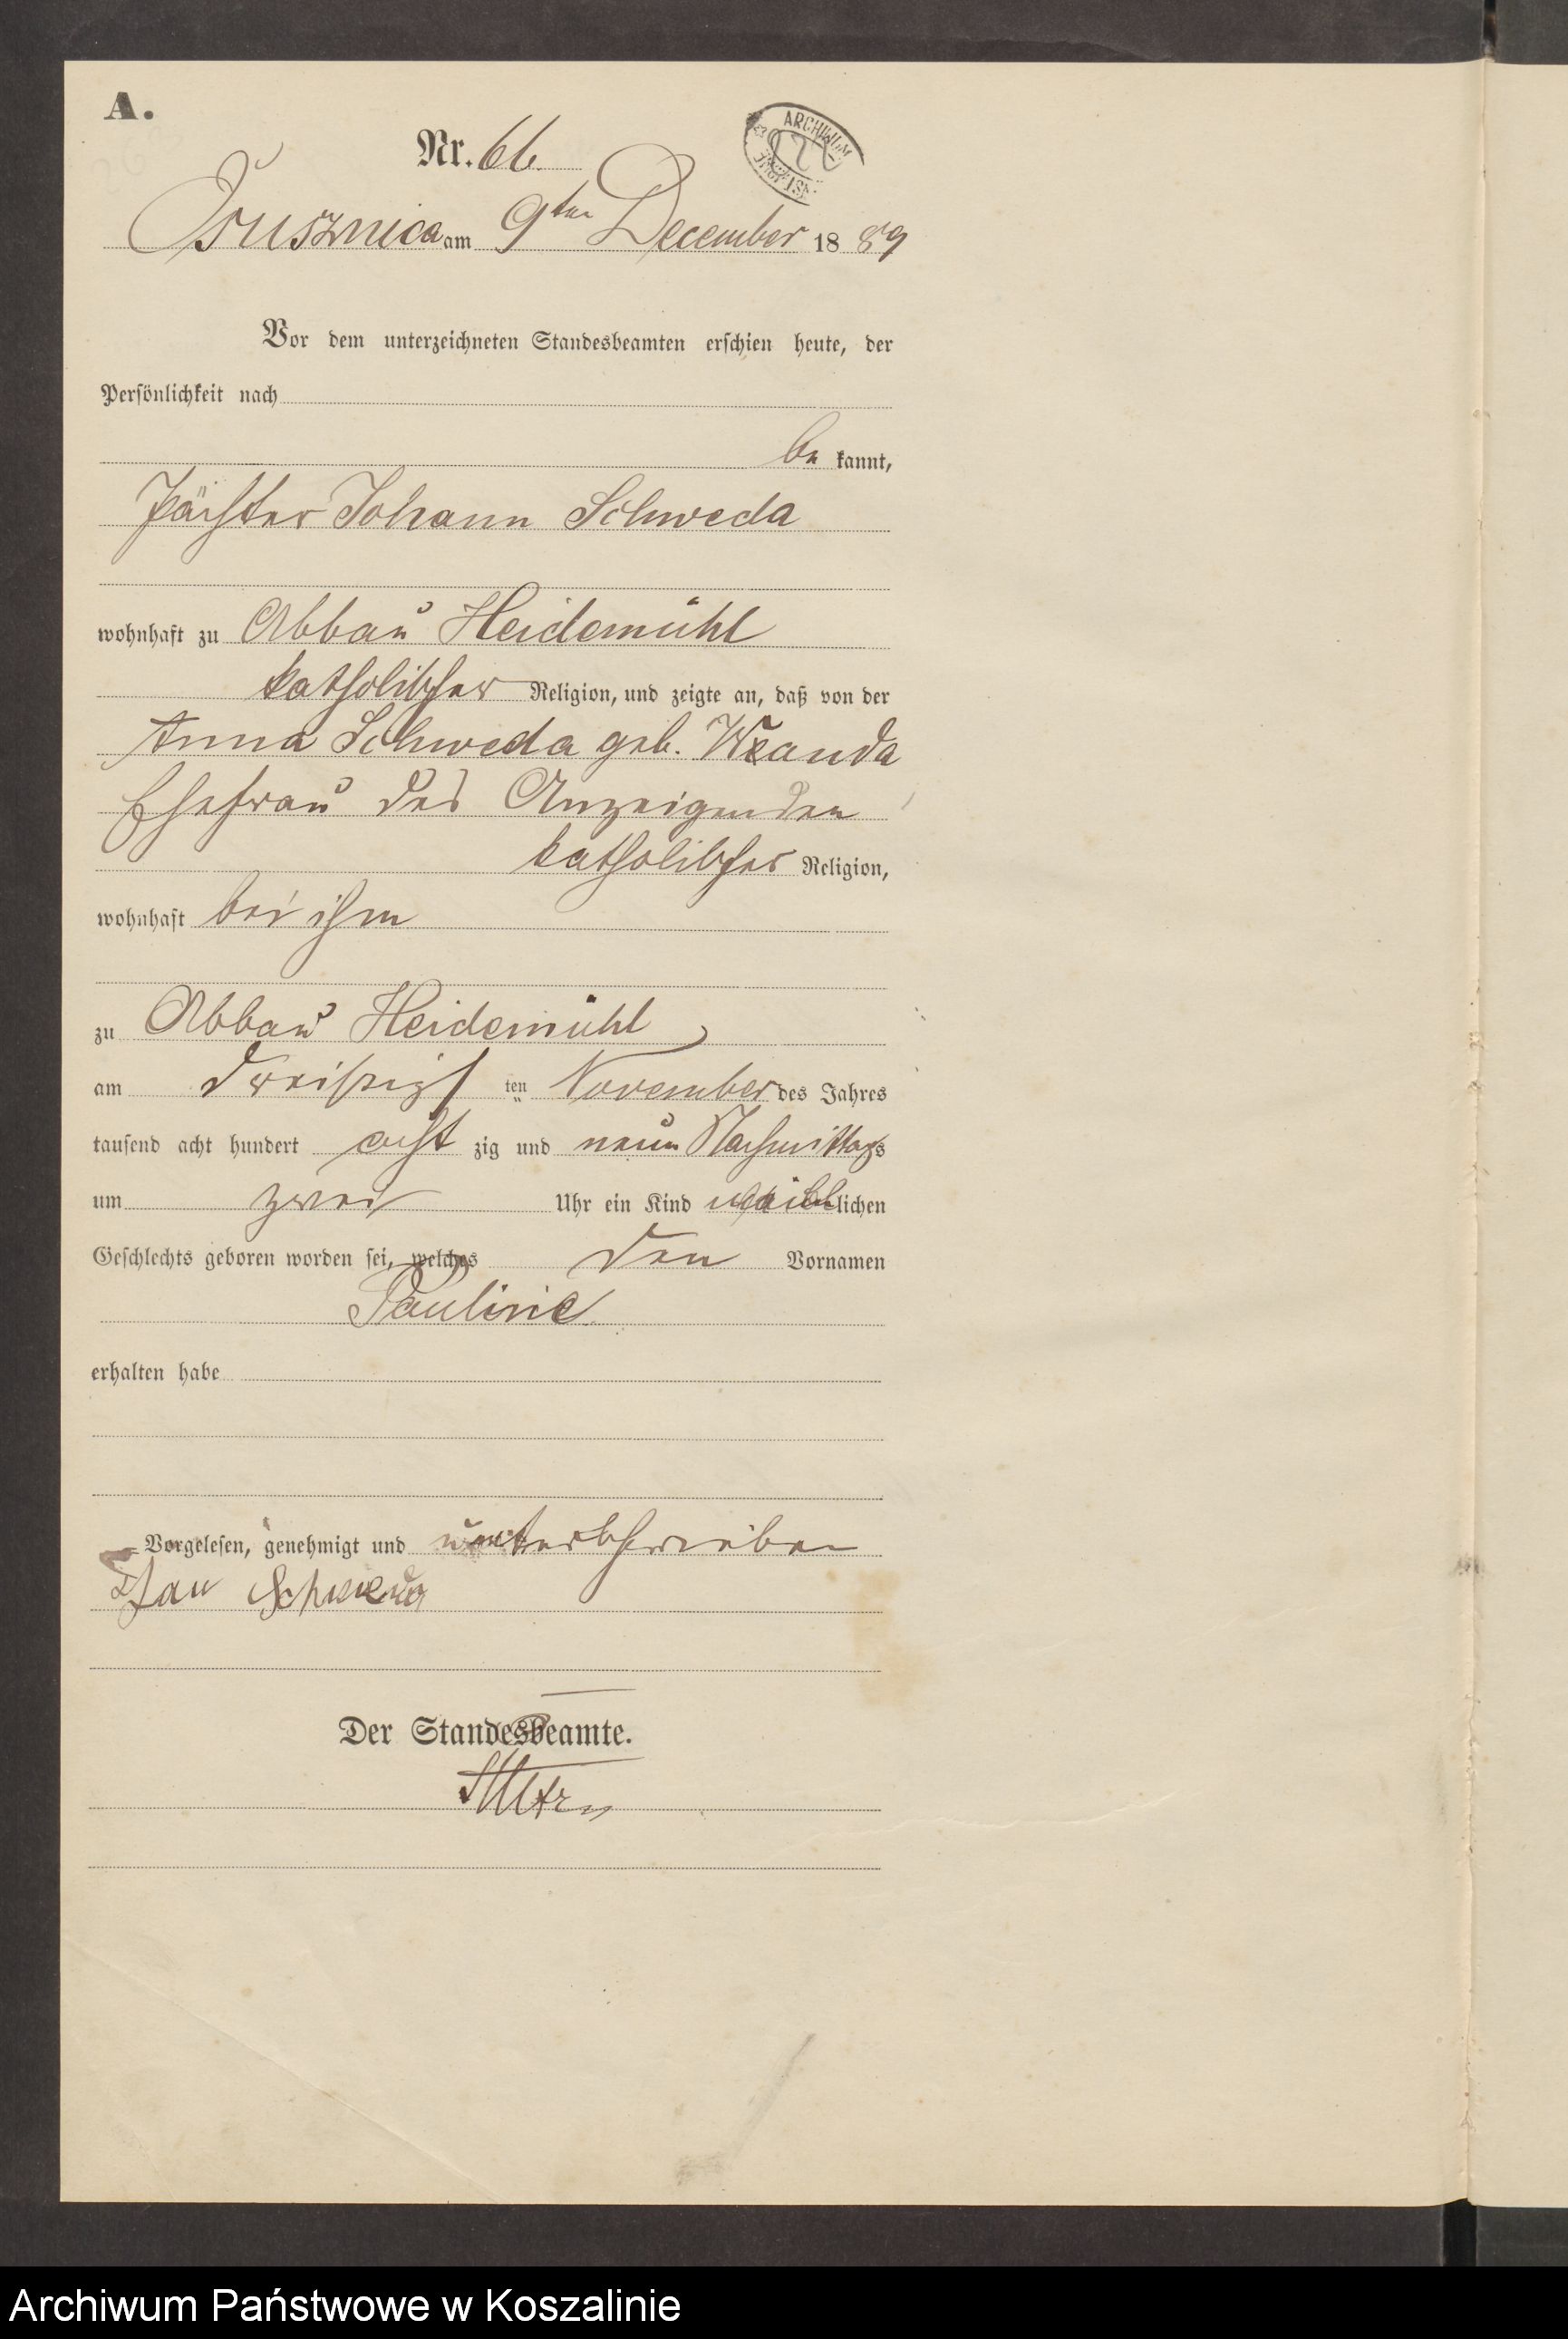 A.
Nr. 66.
ARCHIWUM
Osusznica am 9ten December 1889
Vor dem unterzeichneten Standesbeamten erschien heute, der
Persönlichkeit nach
be kannt,
Pächter Johann Schweda
wohnhaft zu Abbau Heidemühl
katholischer Religion, und zeigte an, daß von der
Anna Schweda geb.
Ehefrau des Anzeigenden
katholischer Religion,
wohnhaft bei ihm
zu Abbau Heidemühl
am dreißigsten November des Jahres
tausend acht hundert acht zig und neun Nachmittags
um zwei Uhr ein Kind weiblichen
Geschlechts geboren worden sei, welches den Vornamen
Pauline
erhalten habe
Vorgelesen, genehmigt und unterschrieben
Jan Schweda
Der Standesbeamte.
Archiwum Państwowe w Koszalinie